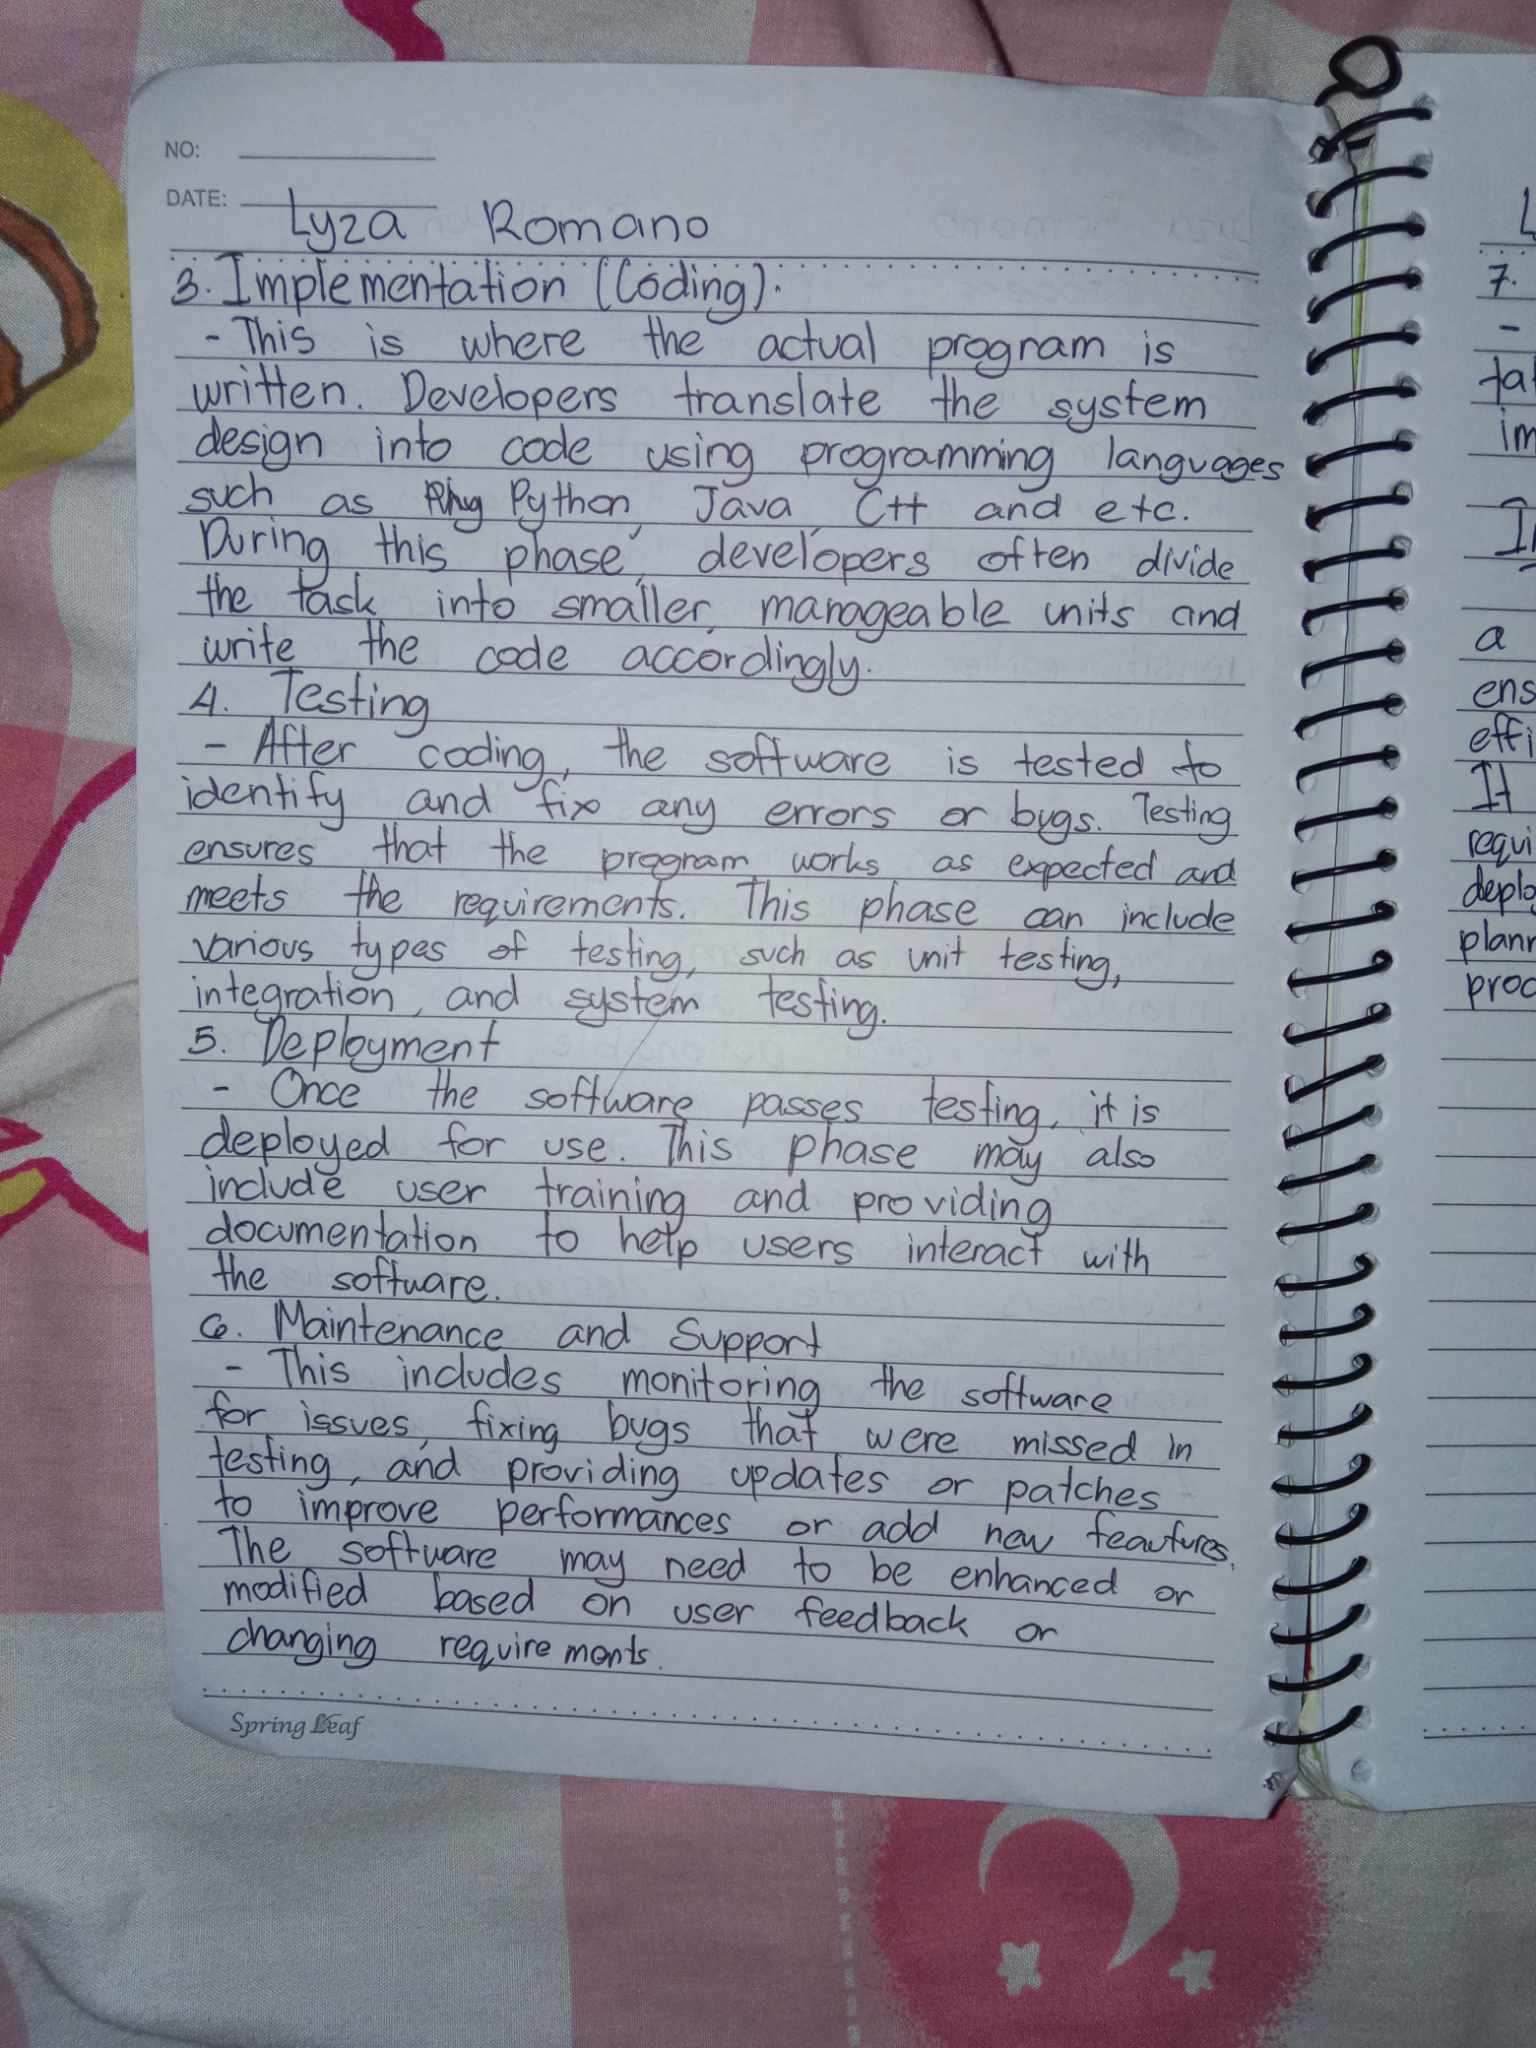 NO:
DATE:
Lyza Romano
3. Implementation (Coding).
- This is where the actual program is
written. Developers translate the system
design into code using programming languages
such as Python, Java, C++ and etc.
During this phase, developers often divide
the task into smaller, manageable units and
write the code accordingly.
4. Testing
- After coding, the software is tested to
identify and fix any errors or bugs. Testing
ensures that the program works as expected and
meets the requirements. This phase can include
various types of testing, such as unit testing,
integration, and system testing.
5. Deployment
- Once the software passes testing, it is
deployed for use. This phase may also
include user training and providing
documentation to help users interact with
the software.
6. Maintenance and Support
- This includes monitoring the software
for issues, fixing bugs that were missed in
testing, and providing updates or patches
to improve performances or add new feautures.
The software may need to be enhanced or
modified based on user feedback or
changing requirements.
Spring Leaf
7.
-
im
a
ens
effi
It
requi
deplo
plann
proc